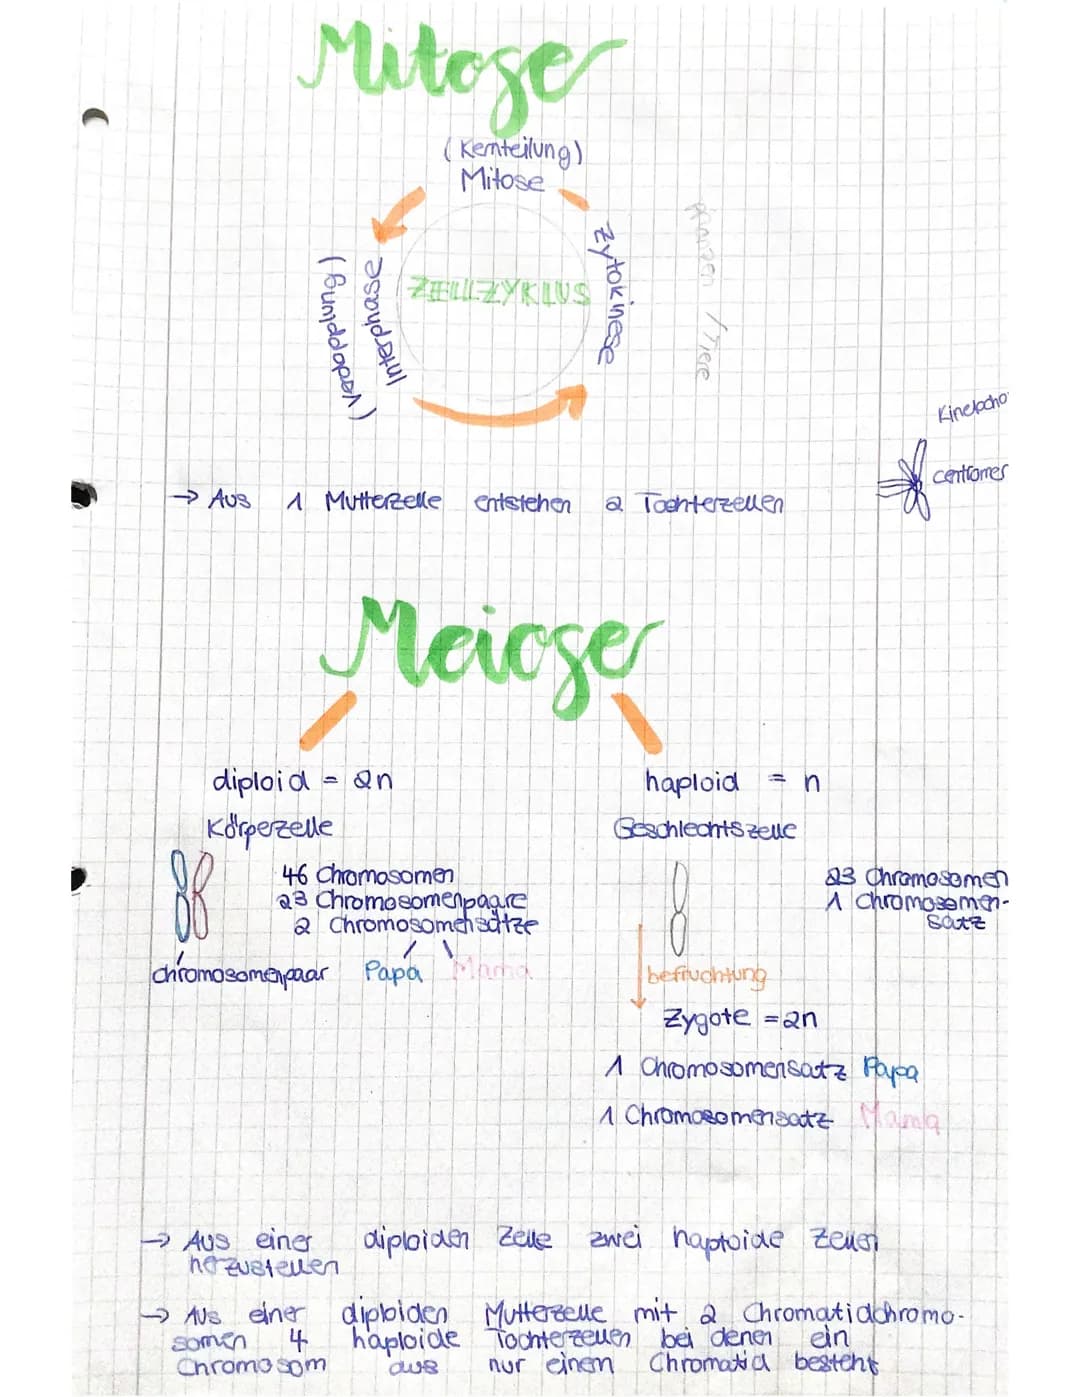 Mitose
(Kernteilung)
Mitose
Zytokinese
Pflanzen / Tiere
Interphase
(Verdopplung)
ZELLZYKLUS
Kinetocho
centromer
→ Aus 1 Mutterzelle entstehen 2 Tochterzellen
Meiose
diploid = 2n
Körperzelle
46 Chromosomen
23 Chromosomenpaare
2 Chromosomensätze
chromosomenpaar Papa Mama
haploid = n
Geschlechtszelle
23 Chromosomen
1 Chromosomen-
satz
befruchtung
Zygote = 2n
1 Chromosomensatz Papa
1 Chromosomensatz Mama
→ Aus einer diploiden Zelle zwei haploide Zellen
herzustellen
→ Aus einer diploiden Mutterzelle mit 2 Chromatidchromo-
somen 4 haploide Tochterzellen bei denen ein
Chromosom aus nur einem Chromatid besteht